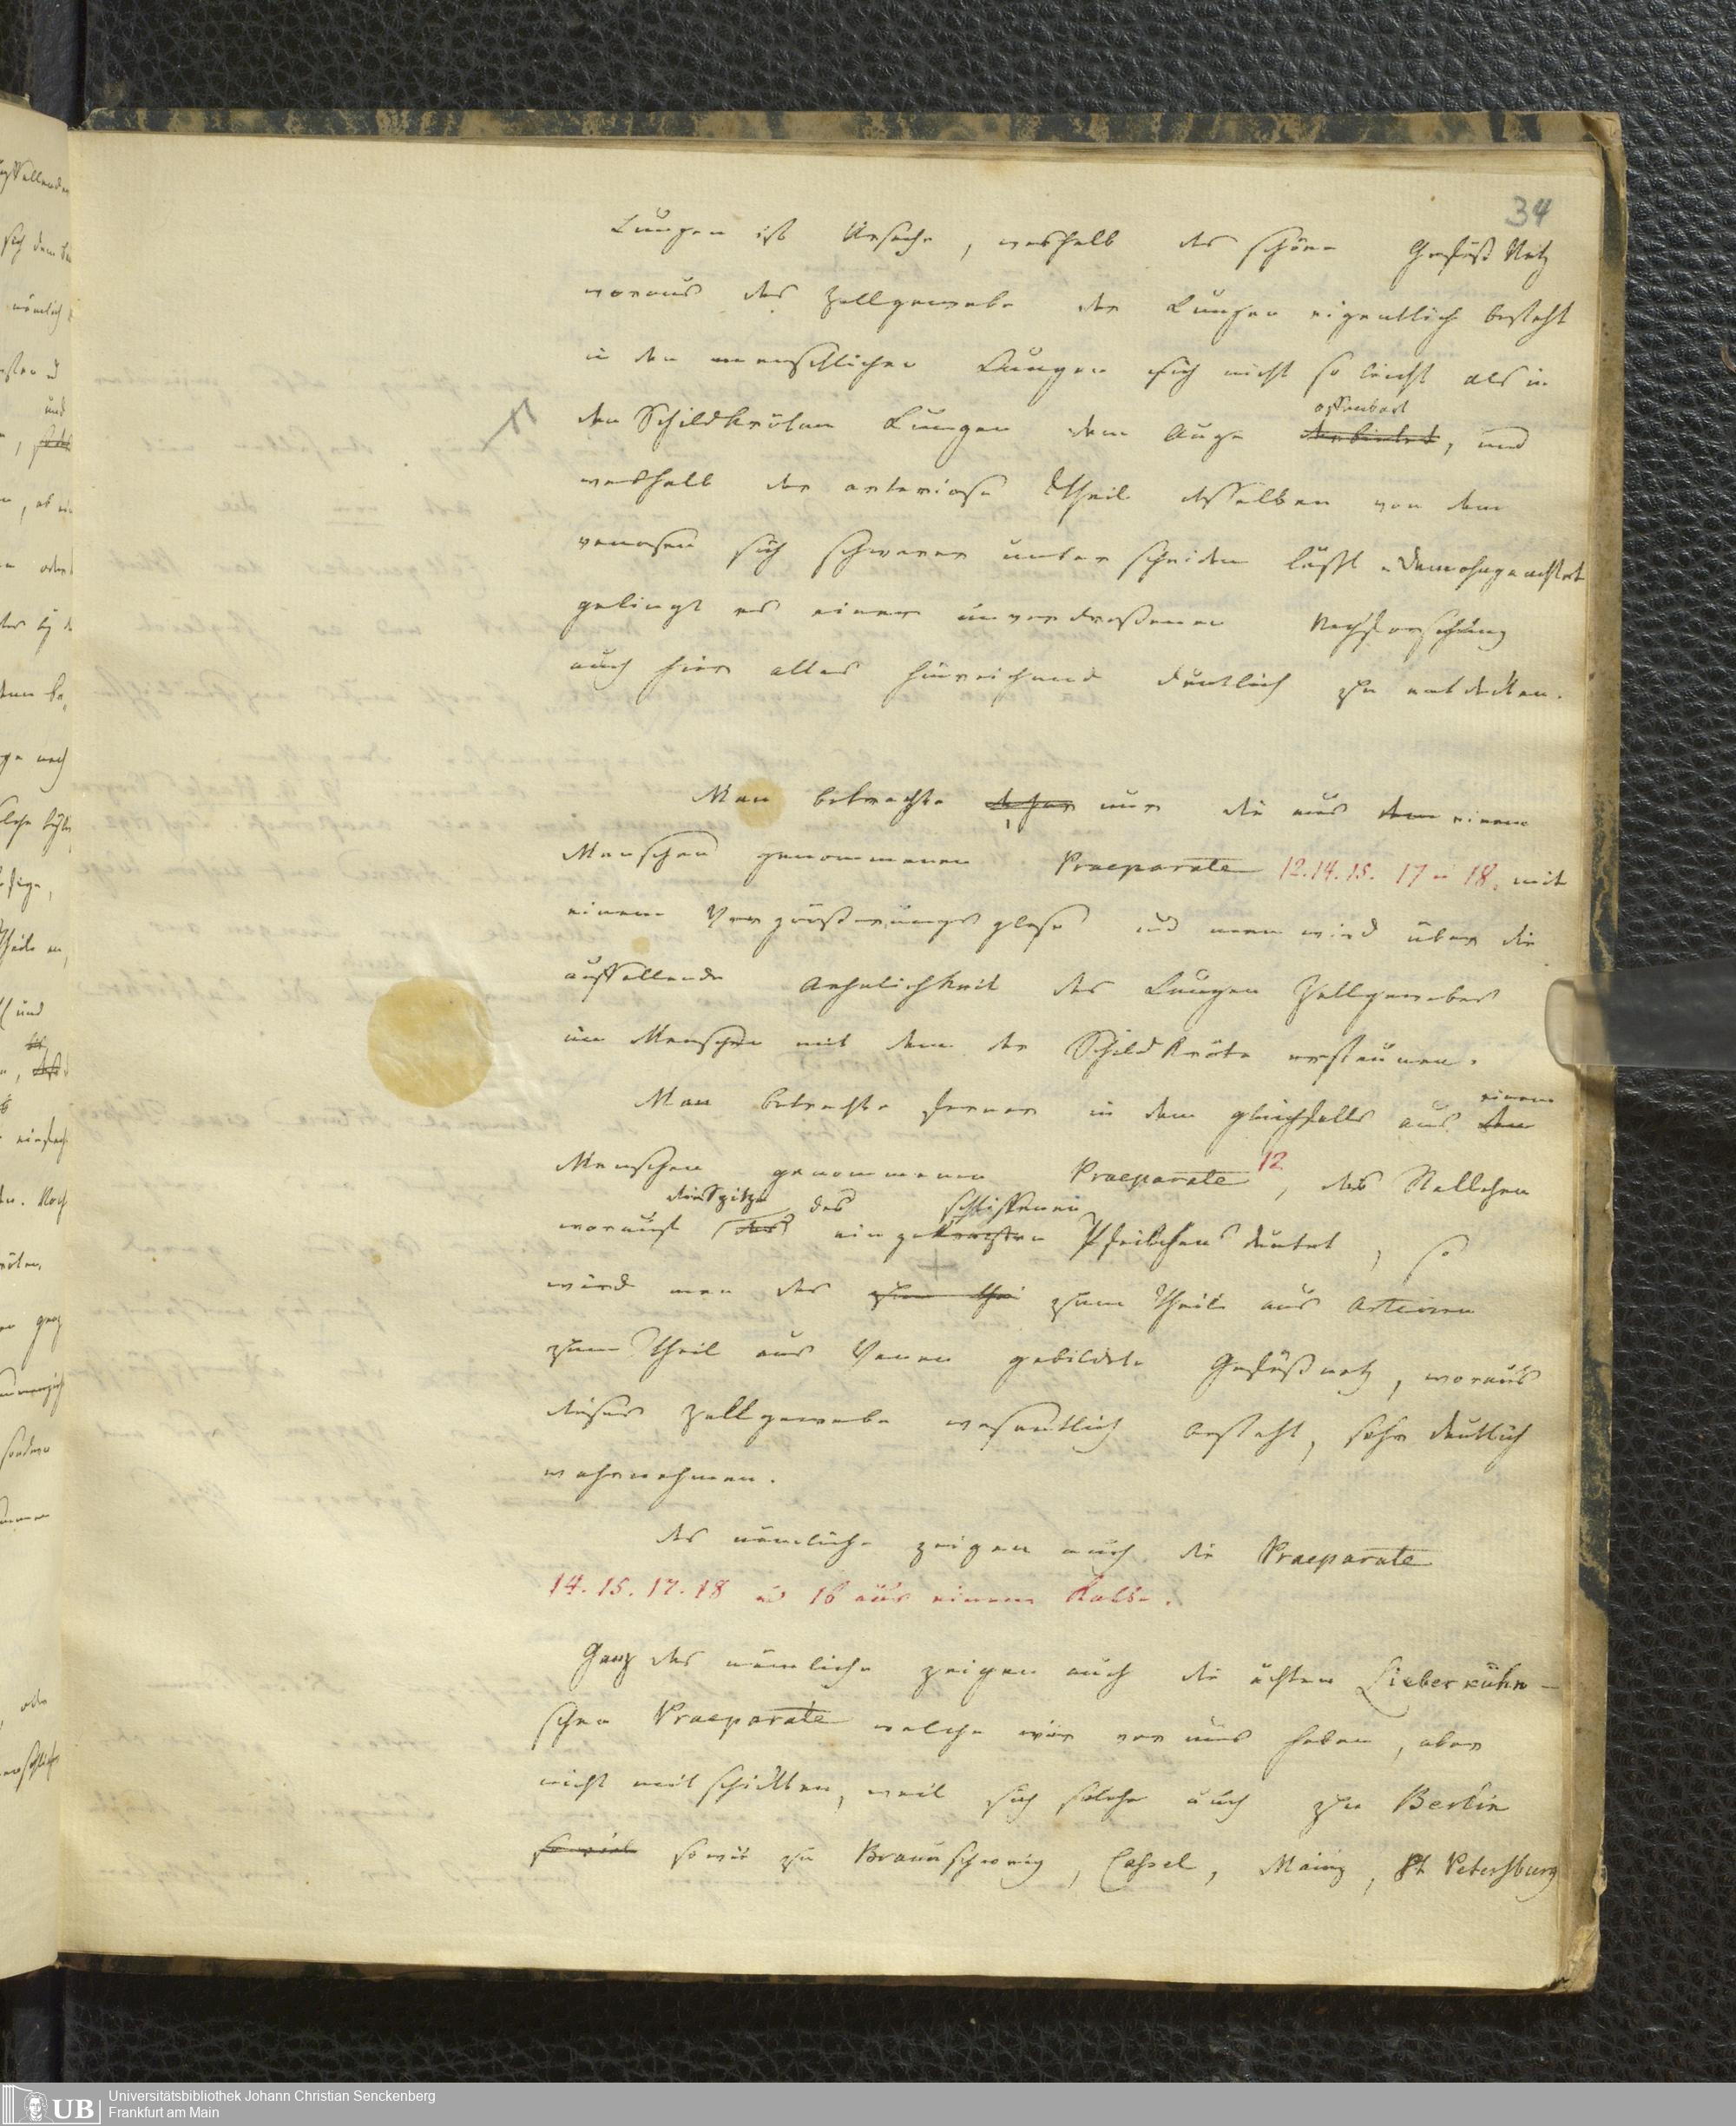 34
Lungen ist Ursache, weshalb das schöne Gefäß Netz
woraus das Zellgewebe der Lungen eigentlich besteht
in den menschlichen Lungen sich nicht so leicht als in
den Schildkröten Lungen dem Auge darbietet offenbart, und
weshalb der arteriose Theil desselben von dem
venosen sich schwerer unterscheiden läßt. Demohngeachtet
gelingt es einer unverdroßenen Nachforschung
auch hier alles hinreichend deutlich zu entdecken.
Man betrachte daher nur die aus dem einem
Menschen genommenen Praeparate 12. 14. 15. 17 u 18. mit
einem Vergrößerungs glase und man wird über die
auffallende Aehnlichkeit des Lungen Zellgewebes
im Menschen mit dem der Schildkröte erstaunen.
Man betrachte ferner in dem gleichfalls aus dem einem
Menschen genommenen Praeparate 12, das Stellchen
worauf das die Spitze des eingebrachten schliffenen Pfeilchens deutet, so
wird man das zum thei zum Theil aus Arterien
zum Theil aus Venen gebildete Gefäßnetz, woraus
dieses Zellgewebe wesentlich besteht, sehr deutlich
wahrnehmen.
das nämliche zeigen auch die Praeparate
14. 15. 17. 18 u 16 aus einem Kalbe.
Ganz das nämliche zeigen auch die ächten Lieberkühn-
schen Praeparate welche wir vor uns haben, aber
nicht mitschickten, weil sich solche auch zu Berlin
so viel sowie zu Braunschweig, Cassel, Mainz, St Petersburg
UB
Universitätsbibliothek Johann Christian Senckenberg
Frankfurt am Main